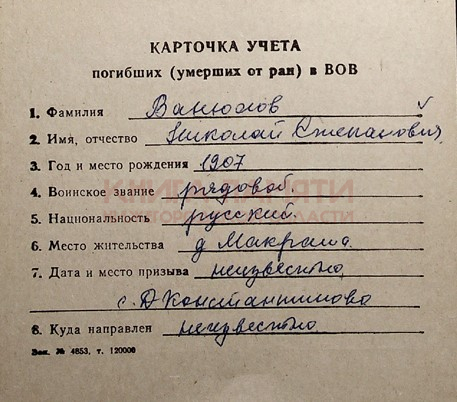 КАРТОЧКА УЧЕТА
погибших (умерших от ран) в ВОВ
1. Фамилия Ванюсов
2. Имя, отчество Николай Степанович
3. Год и место рождения 1907
4. Воинское звание рядовой.
5. Национальность русский.
6. Место жительства д Макраша.
7. Дата и место призыва неизвестно,
с. Д Константиново
8. Куда направлен неизвестно.
Зак. № 4853, т. 120000
КНИГА ПАМЯТИ